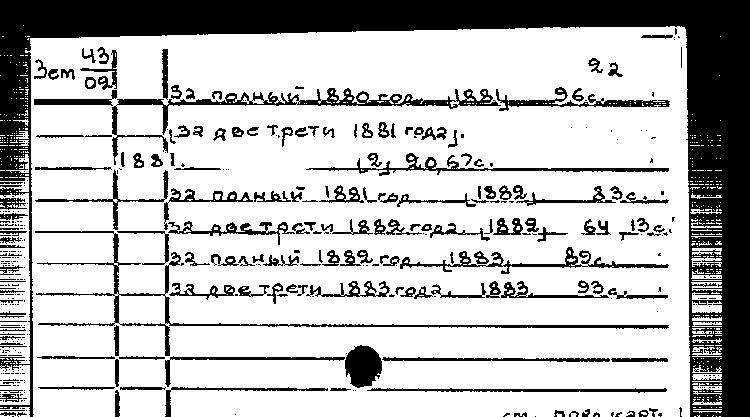 22
Зем 43/02
за полный 1880 год. [1881] 96с.
[за две трети 1881 года].
1881. [2], 20,67с.
за полный 1881 год [1882] 83с.
за две трети 1882 года. [1882] 64,13с.
за полный 1882 год. [1883] 89с.
за две трети 1883 года. 1883 93с.
см. пред. карт.